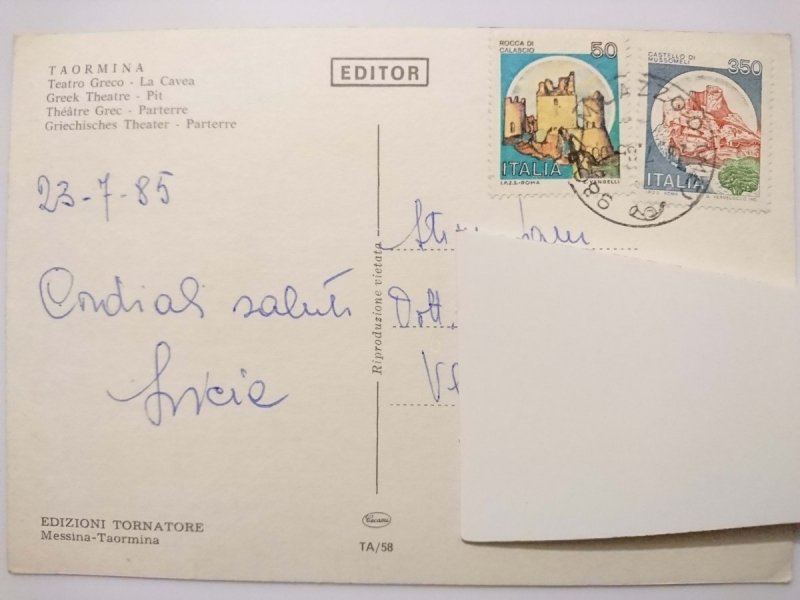 TAORMINA
Teatro Greco - La Cavea
Greek Theatre - Pit
Théâtre Grec - Parterre
Griechisches Theater - Parterre
EDITOR
ROCCA DI
CALASCIO
50
ITALIA
I.P.Z.S.-ROMA
VANGELLI
CASTELLO DI
MUSSOMELI
350
ITALIA
23-7-85
Cordiali saluti
Riproduzione vietata
Dott.
EDIZIONI TORNATORE
Messina-Taormina
Cecami
TA/58